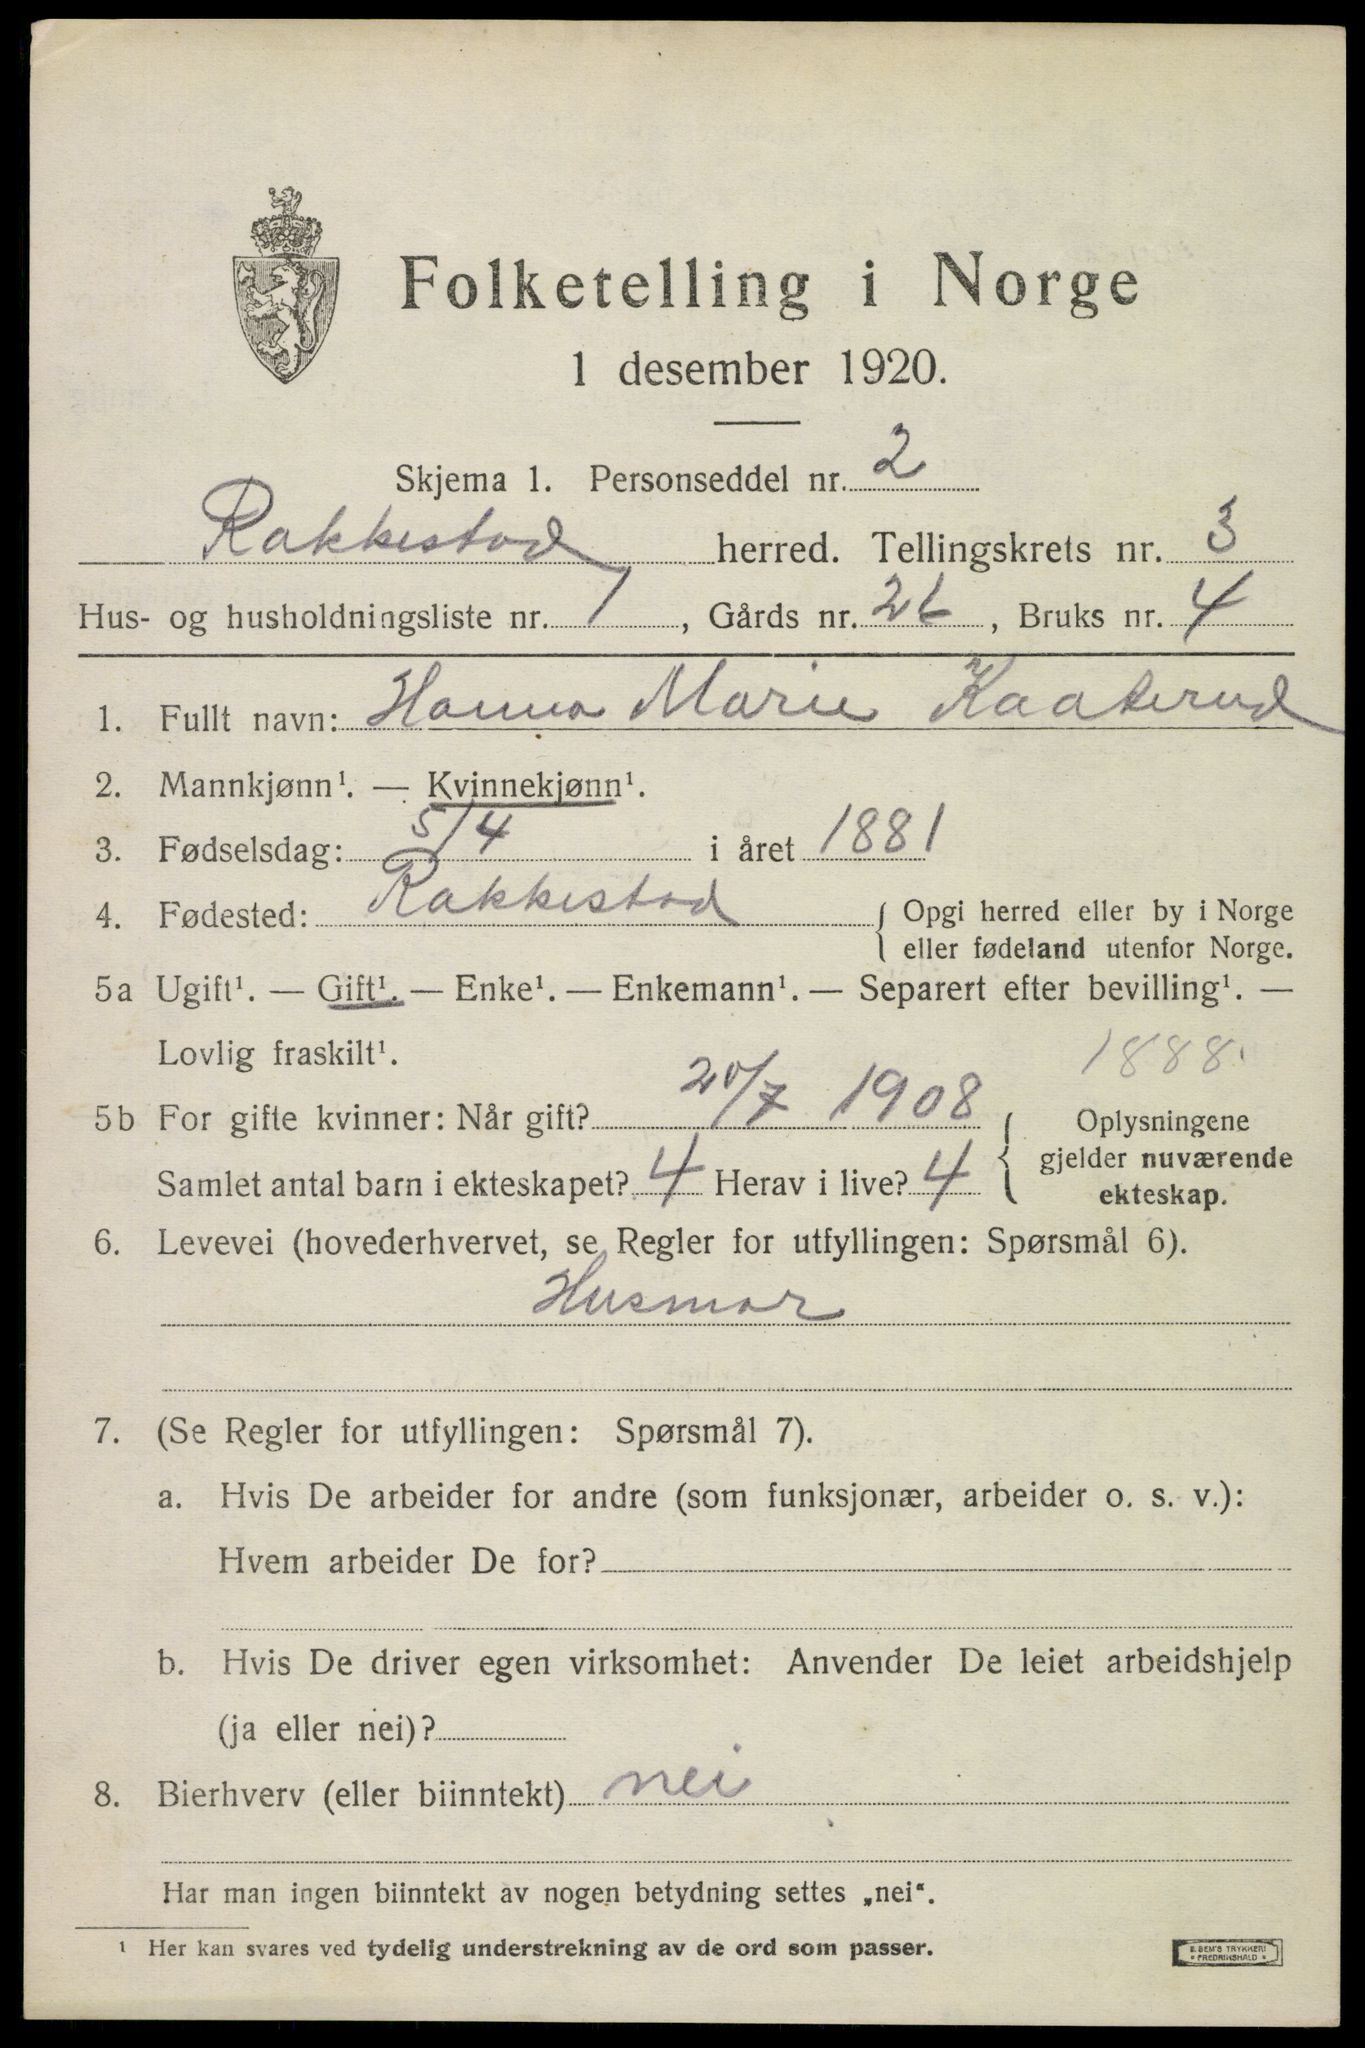 Folketelling i Norge
1 desember 1920.
Skjema 1. Personseddel nr. 2
Rakkestad herred. Tellingskrets nr. 3
Hus- og husholdningsliste nr. 1, Gårds nr. 26, Bruks nr. 4
1. Fullt navn: Hanna Marie Kaaterud
2. Mannkjønn¹. — Kvinnekjønn¹.
3. Fødselsdag: 5/4 i året 1881
4. Fødested: Rakkestad { Opgi herred eller by i Norge
eller fødeland utenfor Norge.
5a Ugift¹. — Gift¹. — Enke¹. — Enkemann¹. — Separert efter bevilling¹. —
Lovlig fraskilt¹. 1888.
5b For gifte kvinner: Når gift? 20/7 1908 { Oplysningene
gjelder nuværende
Samlet antal barn i ekteskapet? 4 Herav i live? 4 ekteskap.
6. Levevei (hovederhvervet, se Regler for utfyllingen: Spørsmål 6).
Husmor
7. (Se Regler for utfyllingen: Spørsmål 7).
a. Hvis De arbeider for andre (som funksjonær, arbeider o. s. v.):
Hvem arbeider De for?
b. Hvis De driver egen virksomhet: Anvender De leiet arbeidshjelp
(ja eller nei)?
8. Bierhverv (eller biinntekt) nei
Har man ingen biinntekt av nogen betydning settes „nei“.
¹ Her kan svares ved tydelig understrekning av de ord som passer.
E. SEM'S TRYKKERI
FREDRIKSHALD